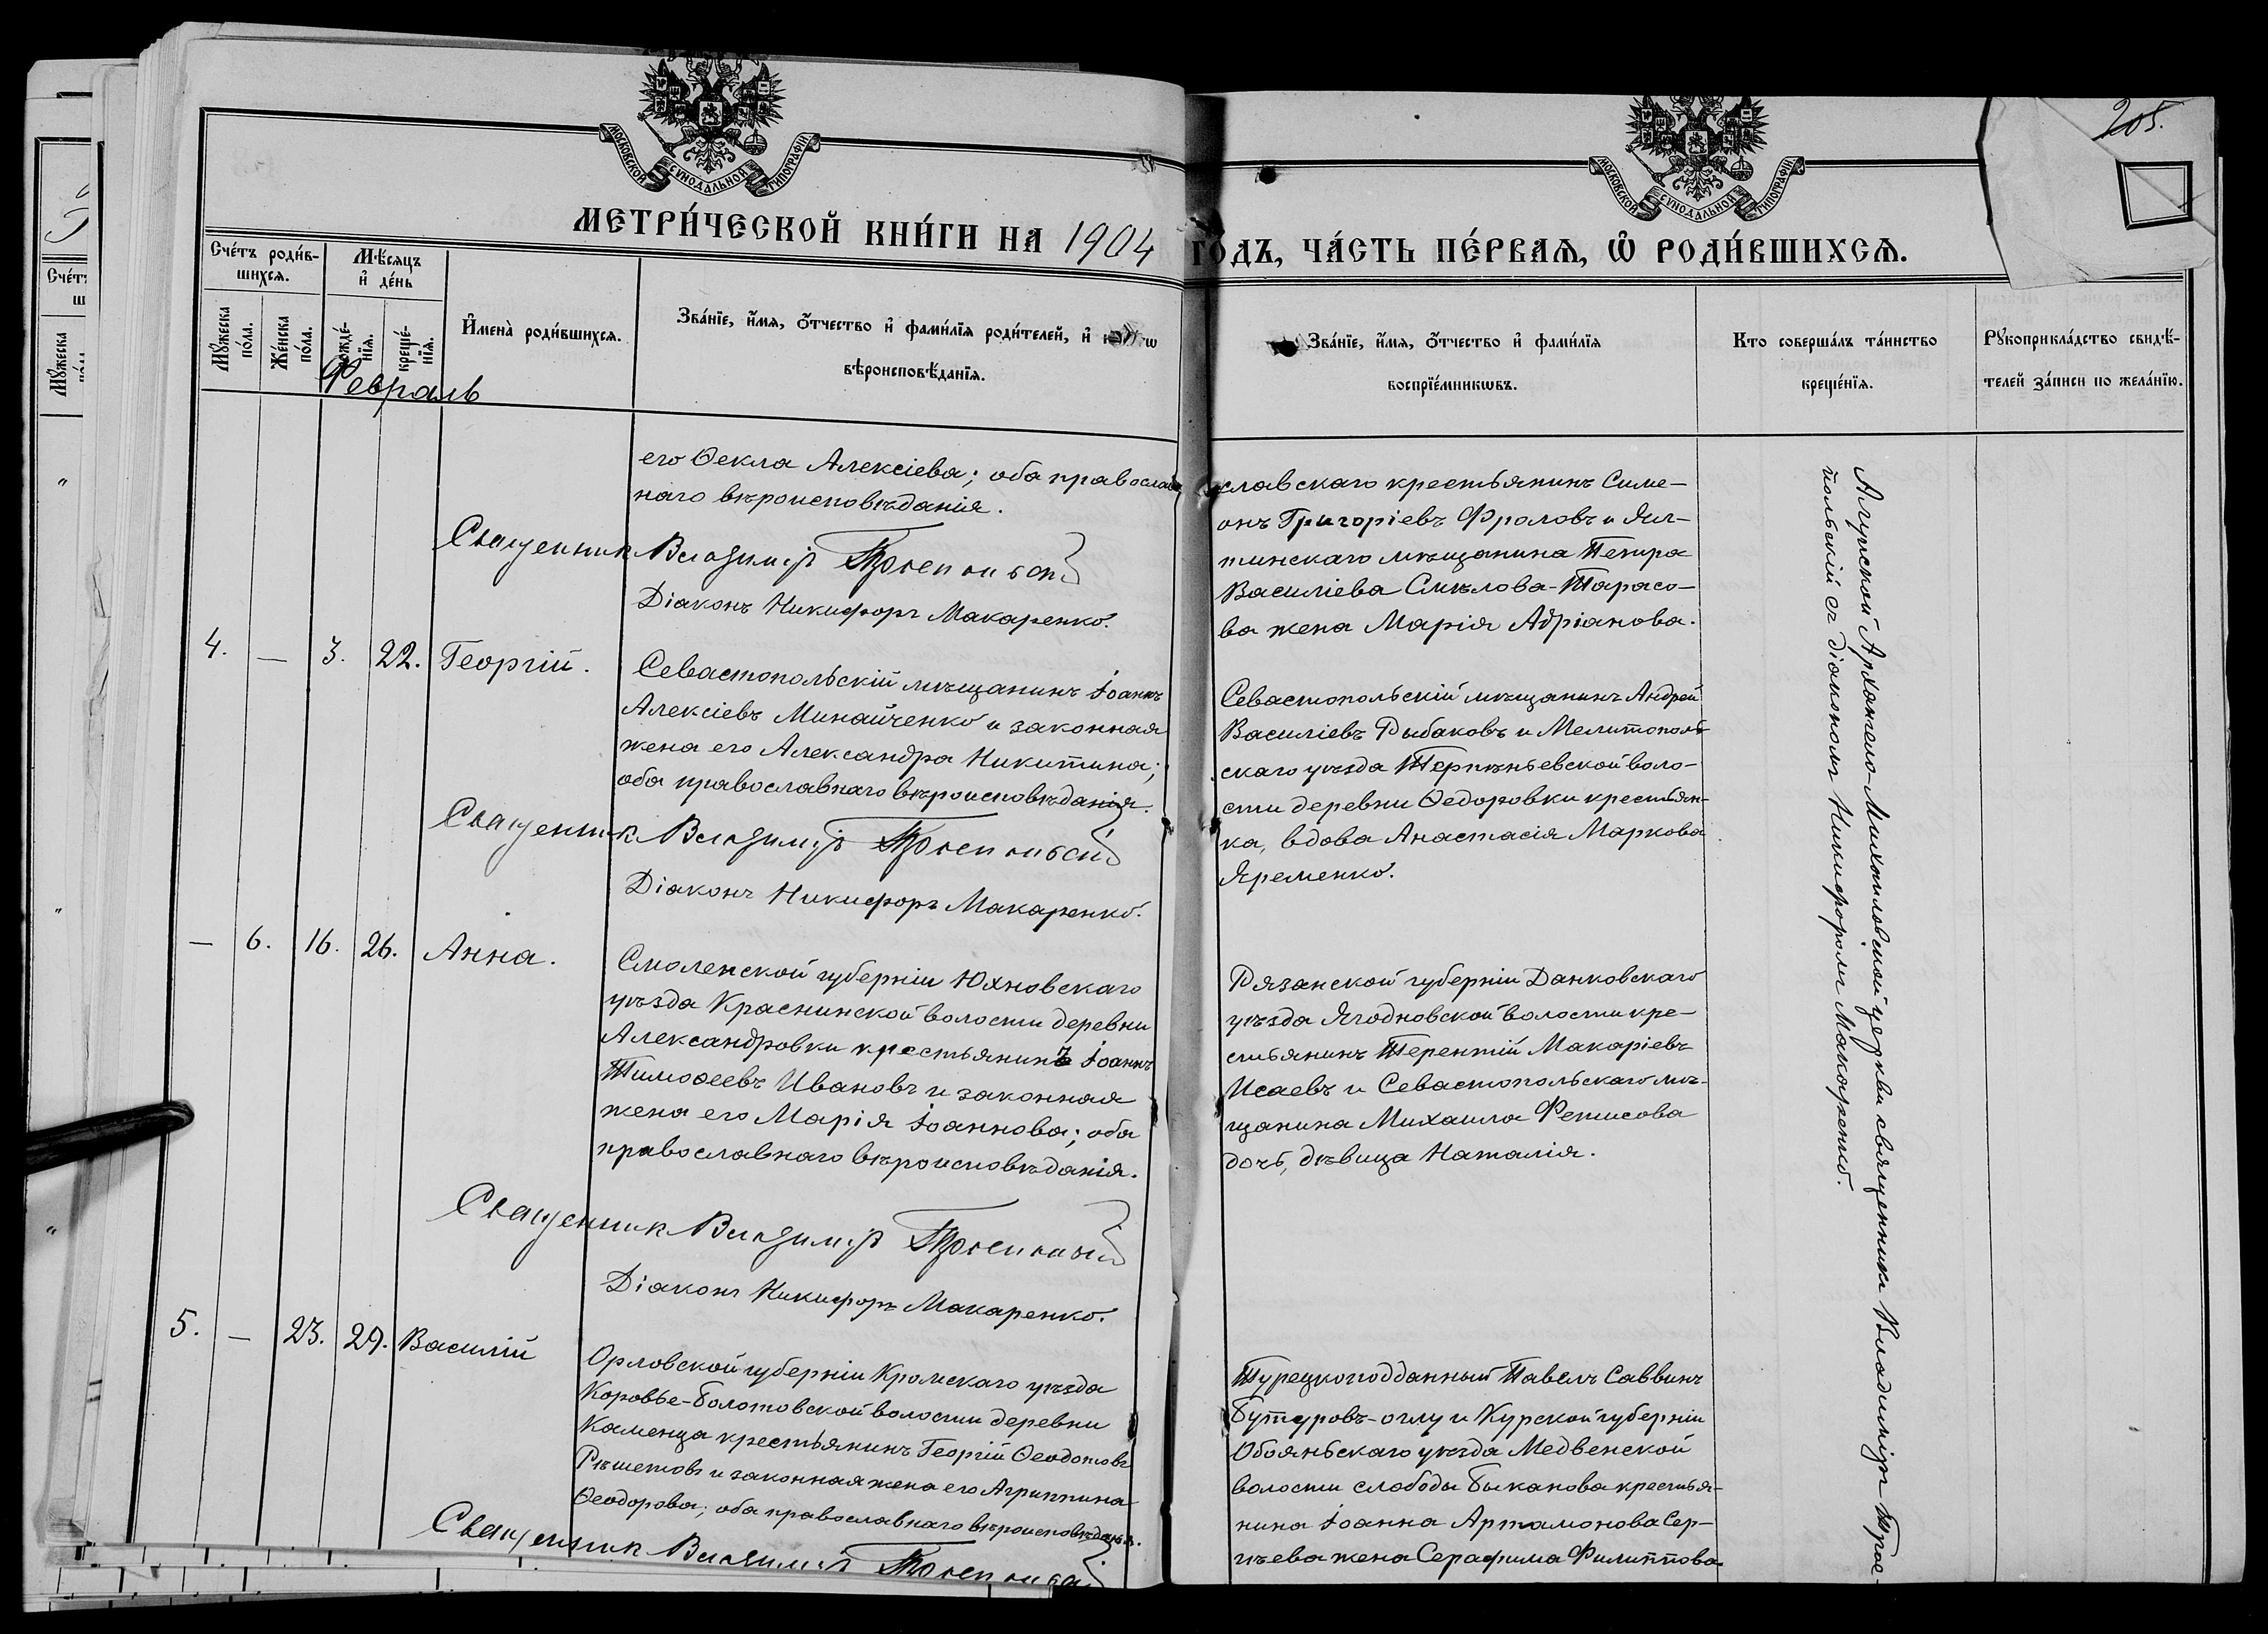 205.
МОСКОВСКОЙ СѴНОДАЛЬНОЙ ТИПОГРАФІИ
МОСКОВСКОЙ СѴНОДАЛЬНОЙ ТИПОГРАФІИ
МЕТРИ́ЧЕСКОЙ КНИ́ГИ НА 1904 ГО́ДЪ, ЧА́СТЬ ПЕ́РВАЯ, Ѡ҆ РОДИ́ВШИХСЯ.
Сче́тъ роди́в-
шихся.
Мѣ́сяцъ
и҆ де́нь
Мꙋ́жеска
по́ла.
Же́нска
по́ла.
рожде́-
нїя.
креще́-
нїя.
И҆мена̀ роди́вшихся.
Зва́нїе, и҆́мя, ѻ҆́тчество и҆ фами́лїя роди́телей, и҆
вѣроисповѣ́данїя.
Зва́нїе, и҆́мя, ѻ҆́тчество и҆ фами́лїя
воспрїе́мникѡвъ.
Кто соверша́лъ та́инство
креще́нїя.
Рꙋкоприкла́дство свидѣ́-
телей за́писи по жела́нїю.
Февраль
его Ѳекла Алексіева; оба православ
наго вѣроисповѣданія.
Священникъ Владиміръ Троепольскій
Діаконъ Никифоръ Макаренко.
славскаго крестьянинъ Симе-
онъ Григоріевъ Фроловъ и Ял-
тинскаго мѣщанина Петра
Василіева Смѣлова-Тарасо-
ва жена Марія Адріанова.
4. — 3. 22. Георгій.
Севастопольскій мѣщанинъ Іоаннъ
Алексіевъ Минайченко и законная
жена его Александра Никитина;
оба православнаго вѣроисповѣданія.
Священникъ Владиміръ Троепольскій
Діаконъ Никифоръ Макаренко.
Севастопольскій мѣщанинъ Андрей
Василіевъ Рыбаковъ и Мелитополь-
скаго уѣзда Терпѣньевской воло-
сти деревни Ѳедоровки крестьян-
ка, вдова Анастасія Маркова
Яременко.
— 6. 16. 26. Анна.
Смоленской губерніи Юхновскаго
уѣзда Краснинской волости деревни
Александровки крестьянинъ Іоаннъ
Тимоѳеевъ Ивановъ и законная
жена его Марія Іоаннова; оба
православнаго вѣроисповѣданія.
Священникъ Владиміръ Троепольскій
Діаконъ Никифоръ Макаренко.
Рязанской губерніи Данковскаго
уѣзда Ягодновской волости кре-
стьянинъ Терентій Макаріевъ
Исаевъ и Севастопольскаго мѣ-
щанина Михаила Фетисова
дочь, дѣвица Наталія.
5. — 23. 29. Василій
Орловской губерніи Кромскаго уѣзда
Коровье-Болотовской волости деревни
Каменца крестьянинъ Георгій Ѳеодотовъ
Рѣшетовъ и законная жена его Агриппина
Ѳеодорова; оба православнаго вѣроисповѣданія.
Священникъ Владиміръ Троепольскій
Турецкоподданный Павелъ Саввинъ
Бутуровъ-оглу и Курской губерніи
Обояньскаго уѣзда Медвенской
волости слободы Быканова крестья-
нина Іоанна Артамонова Сер-
гѣева жена Серафима Филиппова.
Алуштской Архангело-Михаиловской церкви священникъ Владиміръ Трое-
польскій съ діакономъ Никифоромъ Макаренко.
Сче́тъ
Мꙋ́жеска